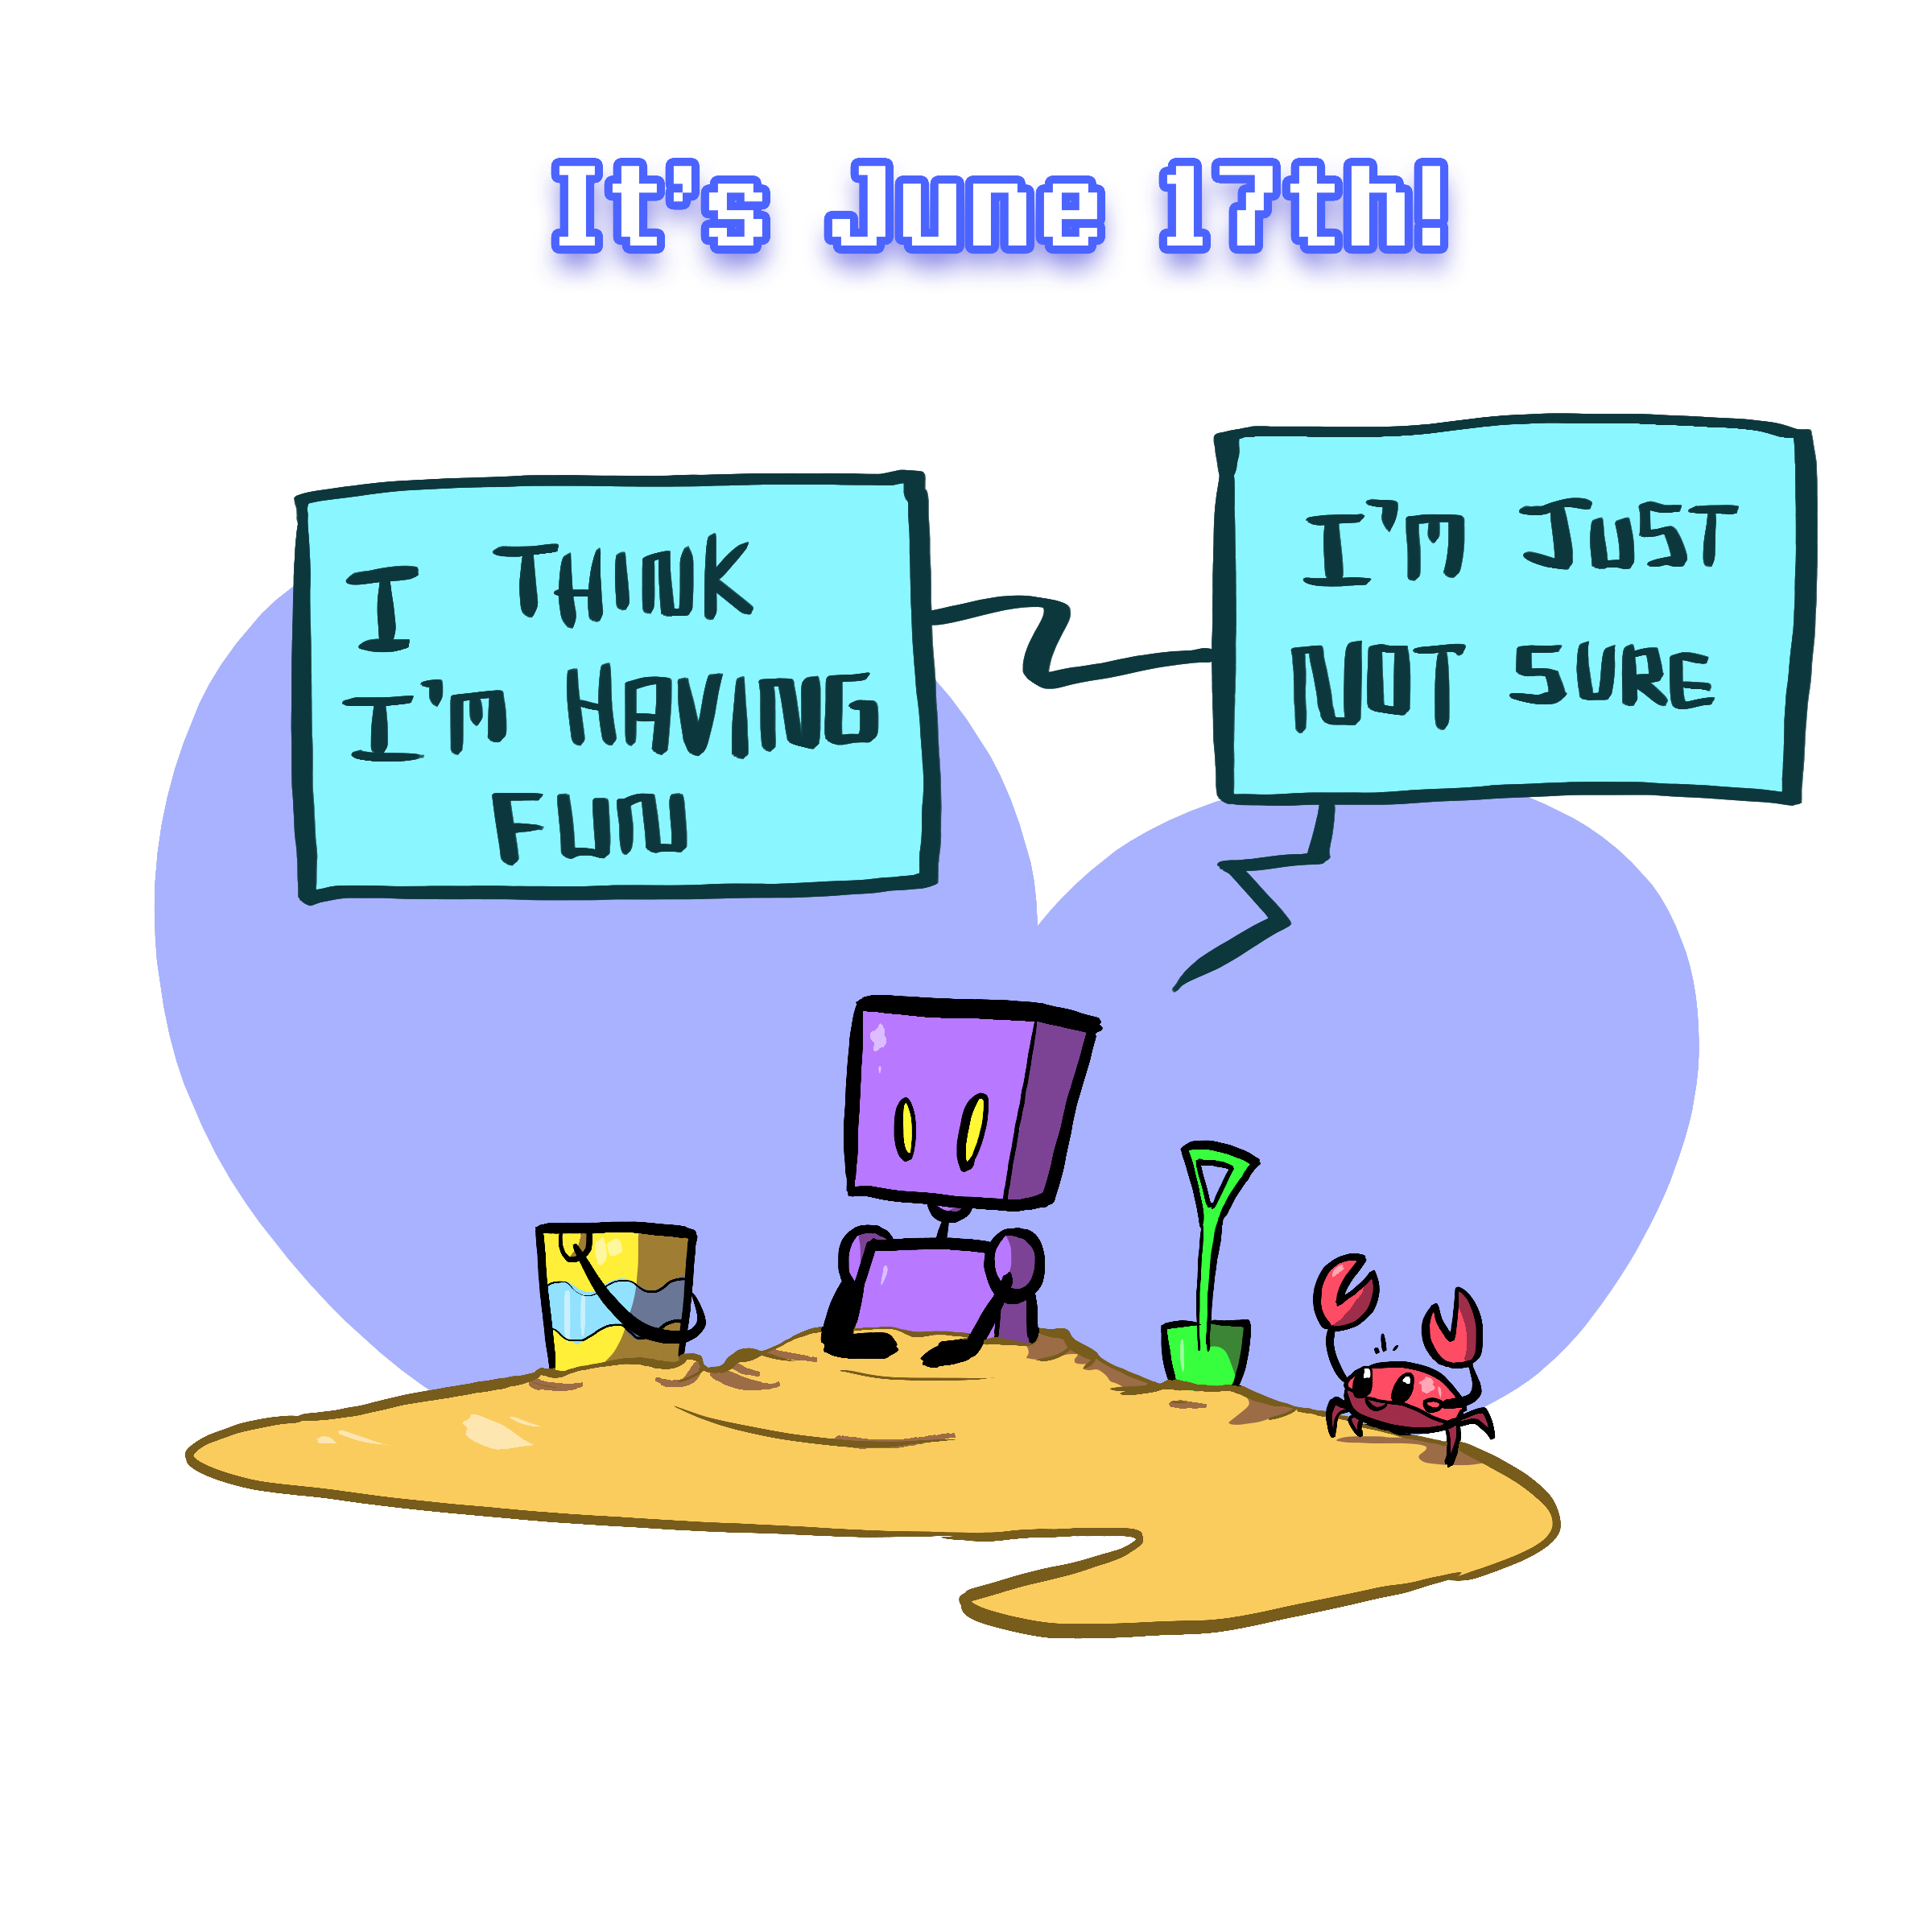 It's June 17th!
I THINK
I'M HAVING
FUN
I'M JUST
NOT SURE